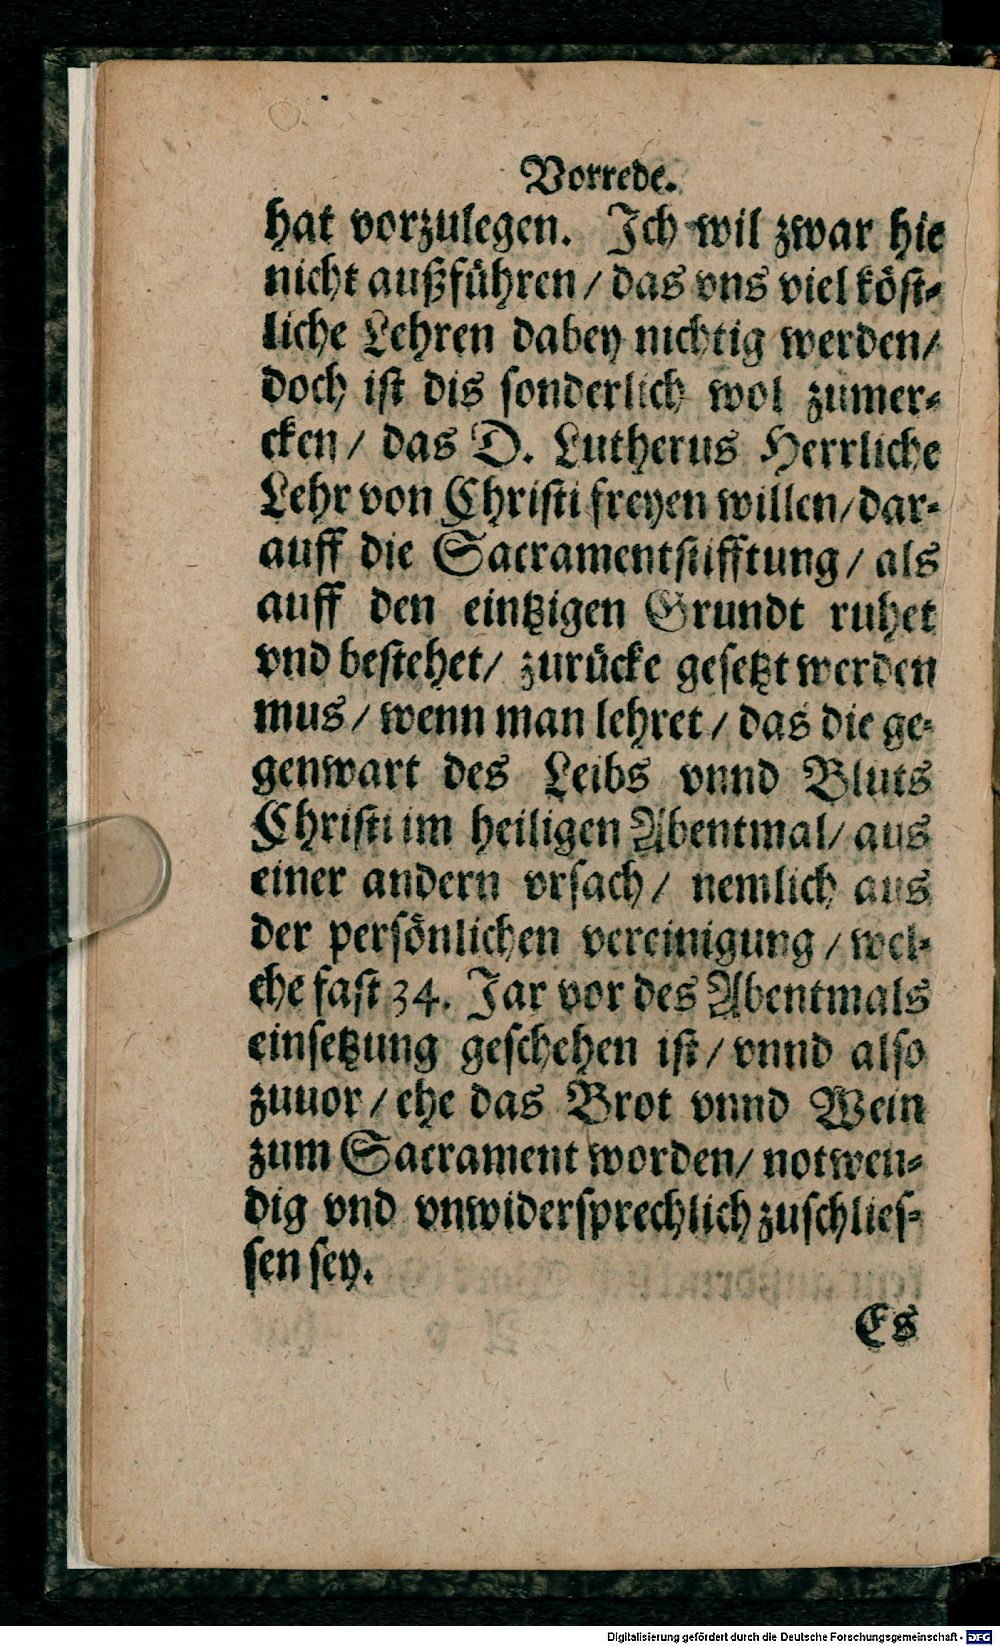 Vorrede.
hat vorzulegen. Ich wil zwar hie
nicht außführen / das vns viel köst-
liche Lehren dabey nichtig werden /
doch ist dis sonderlich wol zumer-
cken / das D. Lutherus Herrliche
Lehr von Christi freyen willen / dar-
auff die Sacramentstifftung / als
auff den eintzigen Grundt ruhet
vnd bestehet / zurücke gesetzt werden
mus / wenn man lehret / das die ge-
genwart des Leibs vnnd Bluts
Christi im heiligen Abentmal / aus
einer andern vrsach / nemlich aus
der persönlichen vereinigung / wel-
che fast 34. Jar vor des Abentmals
einsetzung geschehen ist / vnnd also
zuuor / ehe das Brot vnnd Wein
zum Sacrament worden / notwen-
dig vnd vnwidersprechlich zuschlies-
sen sey.
Es
Digitalisierung gefördert durch die Deutsche Forschungsgemeinschaft - DFG